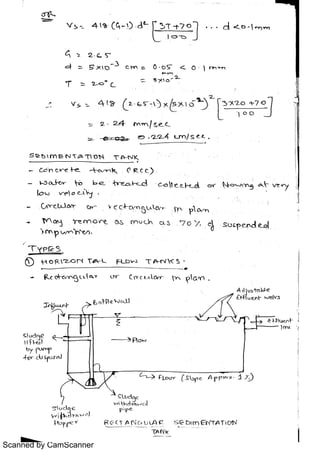 OR
Vs = 418 (G-1) d² [3T+70 / 100] ... d <0.1mm
G = 2.65
d = 5×10⁻³ cm = 0.05 < 0.1 mm
mm
T = 20°C = 5×10⁻²
∴ Vs = 418 (2.65-1) × (5×10⁻²)² [3×20+70 / 100]
= 2.24 mm/sec
= 0.224 cm/sec.
SEDIMENTATION TANK
- Concrete tank (RCC)
- Water to be treated collected or flowing at very
low velocity.
- Circular or rectangular in plan
- May remove as much as 70% of suspended
impurities.
TYPES
① HORIZONTAL FLOW TANKS:
- Rectangular or Circular in plan.
Adjustable
Effluent weirs
Influent
Baffle Wall
Effluent
line
Sludge
lifted
by pump
for disposal
Flow
Floor (Slope Approx. 1%)
Sludge
withdrawal
pipe
Sludge
withdrawal
Hopper
RECTANGULAR SEDIMENTATION
TANK
Scanned by CamScanner